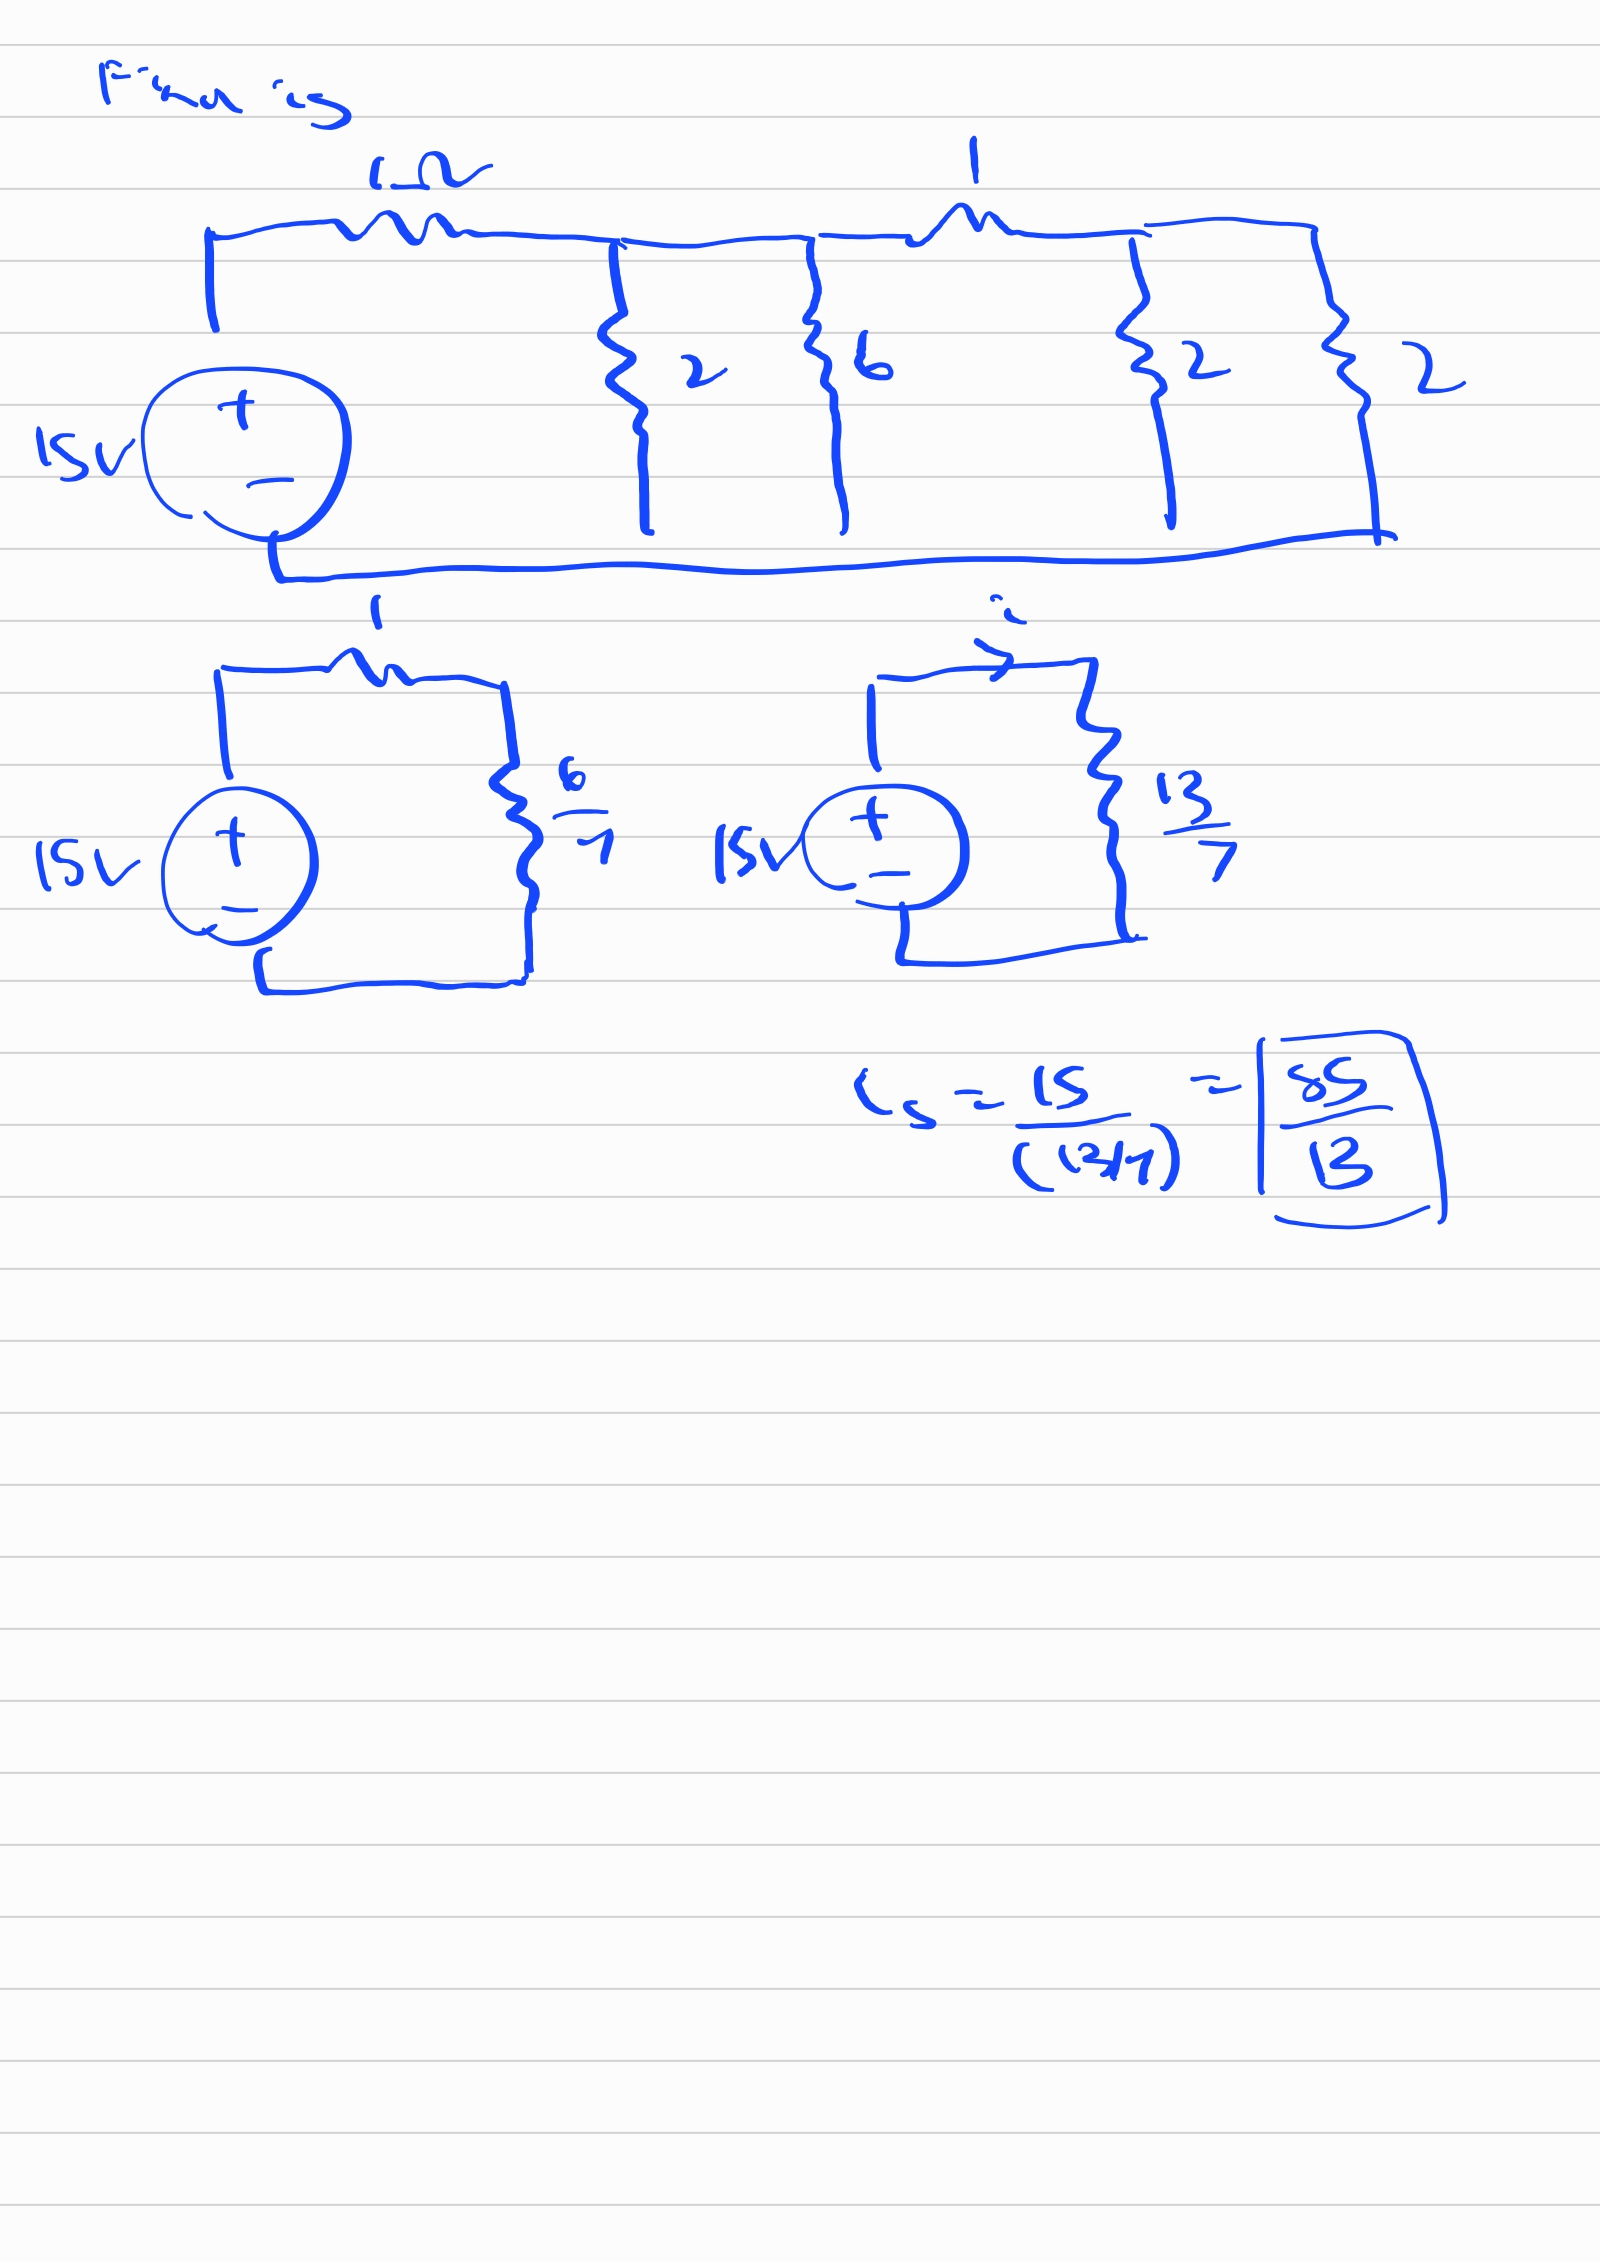 Find is
1Ω 1
15v + − 2 6 2 2
1 i
15v + − 6/7 15v + − 13/7
is = 15/(13/7) = 85/13